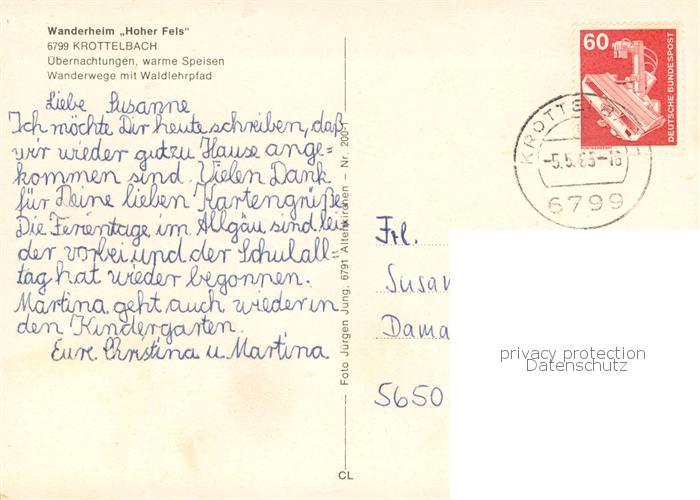 Wanderheim „Hoher Fels"
6799 KROTTELBACH
Übernachtungen, warme Speisen
Wanderwege mit Waldlehrpfad
Liebe Susanne
Ich möchte Dir heute schreiben, daß
wir wieder gut zu Hause ange=
kommen sind. Vielen Dank
für Deine lieben Kartengrüße
Die Ferientage im Allgäu sind lei
der vorbei und der Schulall=
tag hat wieder begonnen.
Martina geht auch wieder in
den Kindergarten.
Eure Christina u. Martina
Foto Jürgen Jung, 6791 Altenkirchen - Nr. 200-1
CL
60
DEUTSCHE BUNDESPOST
KROTTE
-5.5.83-16
6799
Frl.
Susan
Dama
5650
privacy protection
Datenschutz